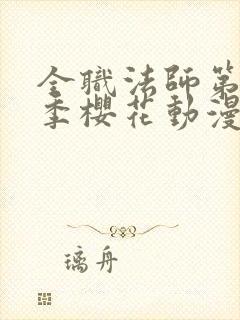 全職法師第
季櫻花動漫
璃舟